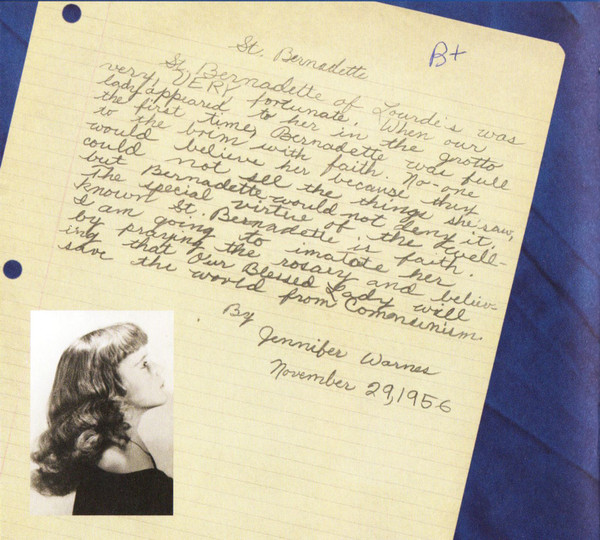 St. Bernadette
B+
St. Bernadette of Lourde's was
very, VERY fortunate. When our
lady appeared to her in the grotto
the first time, Bernadette was full
to the brim with faith. No-one
would believe her because they
could not see the things she saw,
but Bernadette would not deny it.
The special virtue of the well-
known St. Bernadette is faith.
I am going to imatate her
by praying the rosary and believ-
ing that Our Blessed Lady will
save the world from Communism.
By
Jennifer Warnes
November 29, 1956